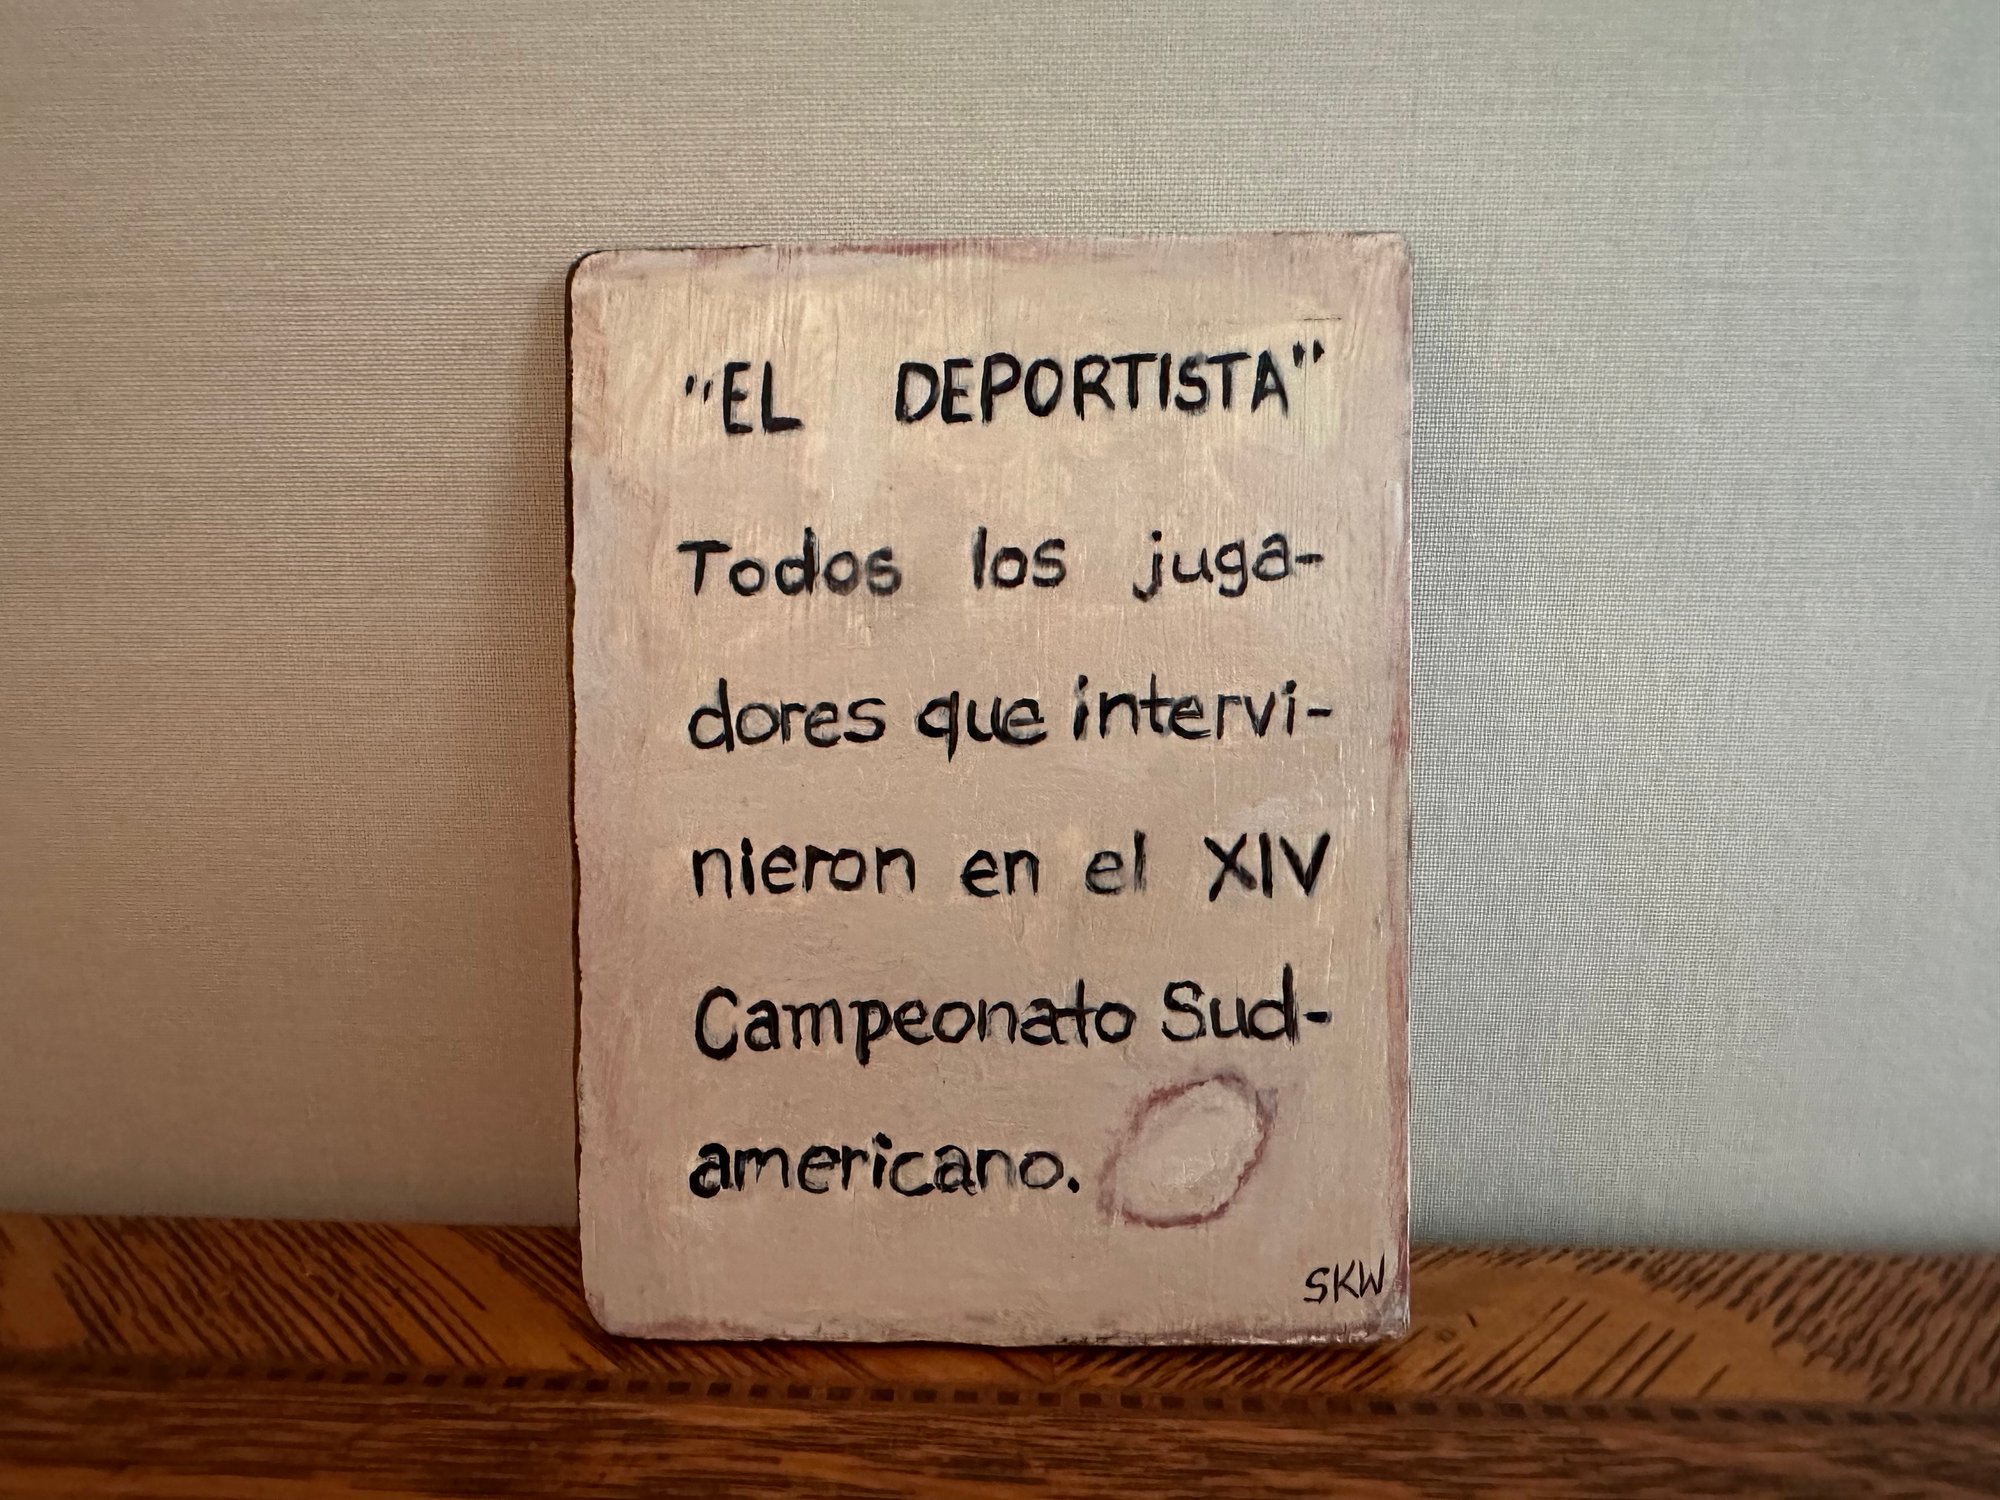 "EL DEPORTISTA"
Todos los juga-
dores que intervi-
nieron en el XIV
Campeonato Sud-
americano.
SKW